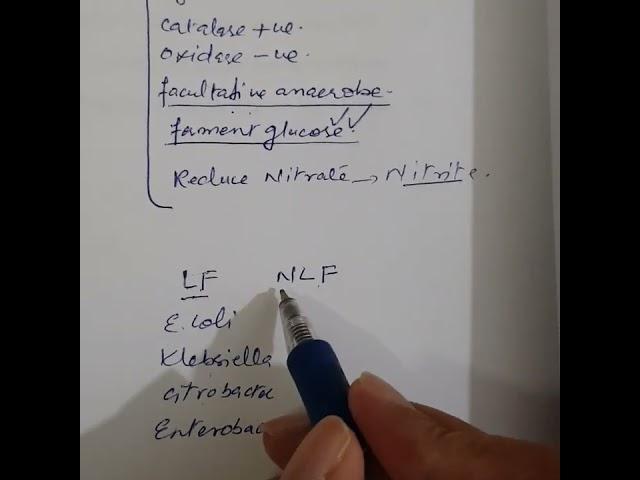 catalase +ve.
oxidase -ve.
facultative anaerobe.
ferment glucose.
Reduce Nitrate → Nitrite.
LF NLF
E. coli
Klebsiella
Citrobacter
Enterobac